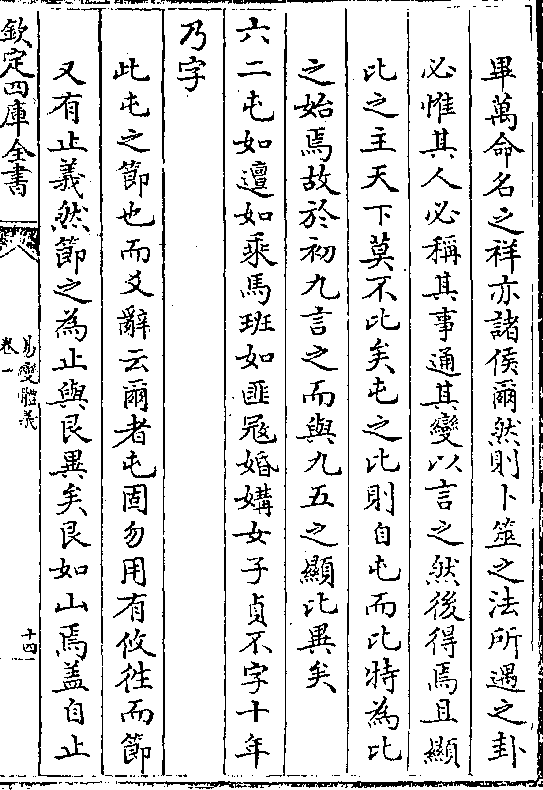 畢萬命名之祥亦諸侯爾然則卜筮之法所遇之卦
必惟其人必稱其事通其變以言之然後得焉且顯
比之主天下莫不比矣屯之比則自屯而比特為比
之始焉故於初九言之而與九五之顯比異矣
六二屯如邅如乘馬班如匪寇婚媾女子貞不字十年
乃字
此屯之節也而爻辭云爾者屯固勿用有攸往而節
又有止義然節之為止與艮異矣艮如山焉蓋自止
欽定四庫全書
易變體義
卷一
十四